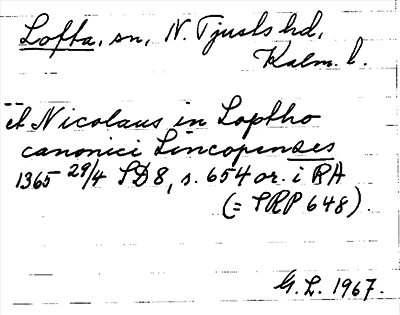 Lofta, sn, N. Tjusts hd,
Kalm. l.
--et Nicolaus in Loptho
canonici Lincopenses
1365 29/4 SD 8, s. 654 or. i RA
(= SRP 648).
G. L. 1967.